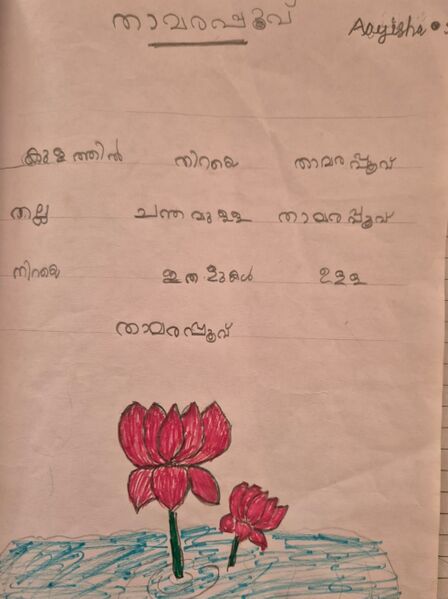 താമരപ്പൂവ് Aayisha
കുളത്തിൽ നിറയെ താമരപ്പൂവ്
നല്ല ചന്തമുള്ള താമരപ്പൂവ്
നിറയെ ഇതളുകൾ ഉള്ള
താമരപ്പൂവ്